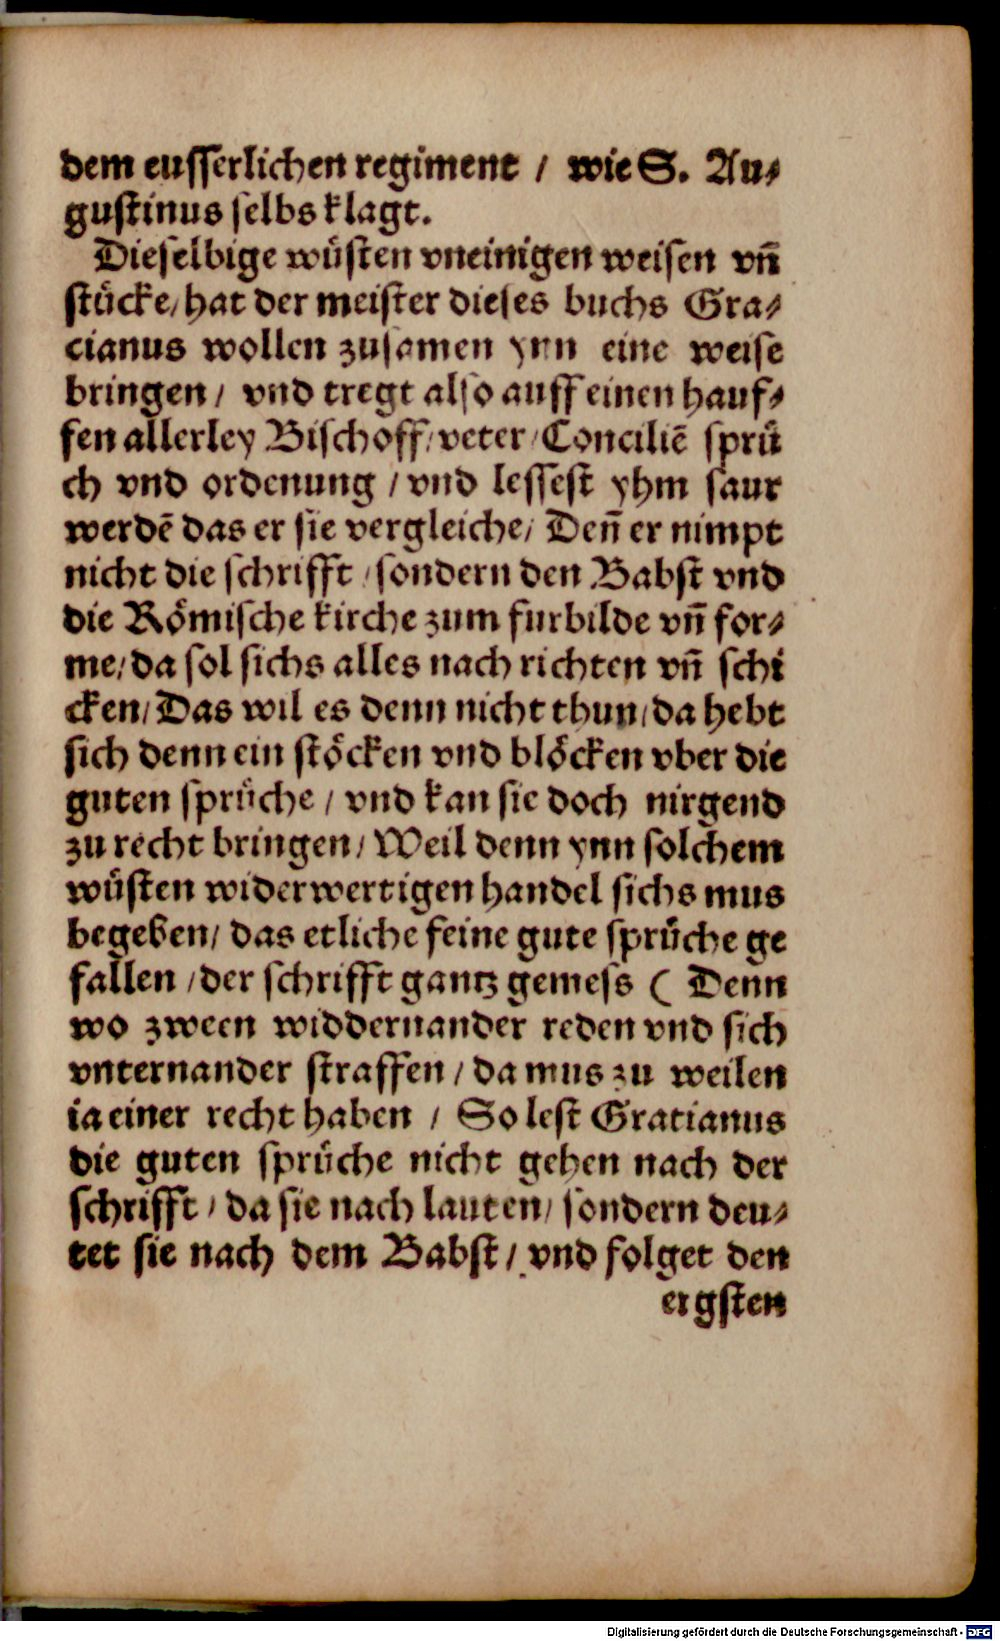 dem eusserlichen regiment / wie S. Au⸗
gustinus selbs klagt.
Dieselbige wüsten vneinigen weisen vñ
stücke/ hat der meister dieses buchs Gra⸗
cianus wollen zusamen ynn eine weise
bringen/ vnd tregt also auff einen hauf⸗
fen allerley Bischoff/ veter/ Conciliē sprü
ch vnd ordenung / vnd lessest yhm saur
werdē das er sie vergleiche/ Deñ er nimpt
nicht die schrifft / sondern den Babst vnd
die Römische kirche zum furbilde vñ for⸗
me/ da sol sichs alles nach richten vñ schi
cken/ Das wil es denn nicht thun/ da hebt
sich denn ein stöcken vnd blöcken vber die
guten sprüche / vnd kan sie doch nirgend
zu recht bringen/ Weil denn ynn solchem
wüsten widerwertigen handel sichs mus
begeben/ das etliche feine gute sprüche ge
fallen / der schrifft gantz gemess ( Denn
wo zween widdernander reden vnd sich
vnternander straffen / da mus zu weilen
ia einer recht haben / So lest Gratianus
die guten sprüche nicht gehen nach der
schrifft / da sie nach lauten/ sondern deu⸗
tet sie nach dem Babst / vnd folget den
ergsten
Digitalisierung gefördert durch die Deutsche Forschungsgemeinschaft - DFG